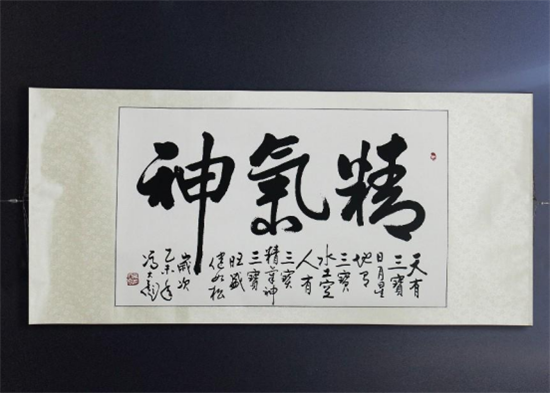 精氣神
天有
三寶
日月星
地有
三寶
水土
人有
三寶
精氣神
三寶
旺盛
健如松
歲次
乙未年